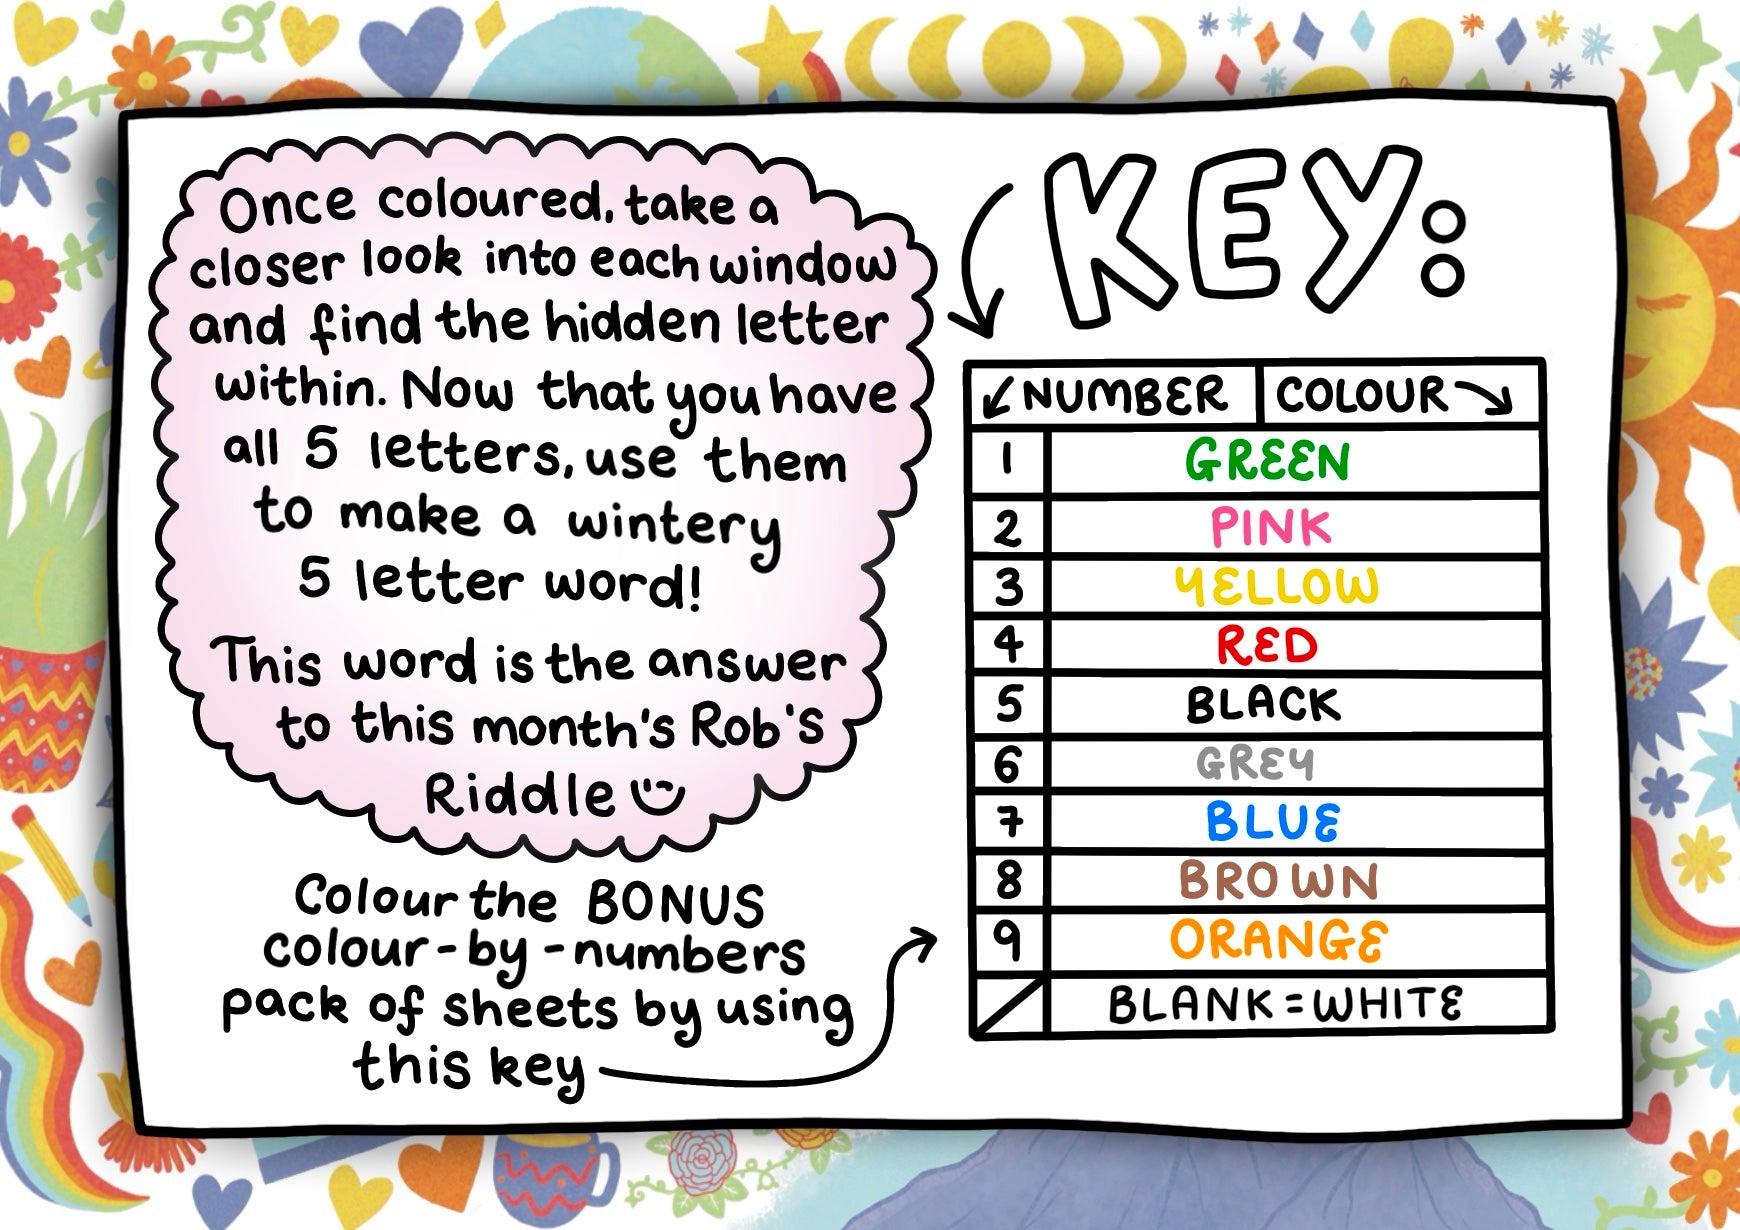 Once coloured, take a
closer look into each window
and find the hidden letter
within. Now that you have
all 5 letters, use them
to make a wintery
5 letter word!
This word is the answer
to this month's Rob's
Riddle
Colour the BONUS
colour-by-numbers
pack of sheets by using
this key
KEY:
NUMBER COLOUR
1 GREEN
2 PINK
3 YELLOW
4 RED
5 BLACK
6 GREY
7 BLUE
8 BROWN
9 ORANGE
BLANK = WHITE